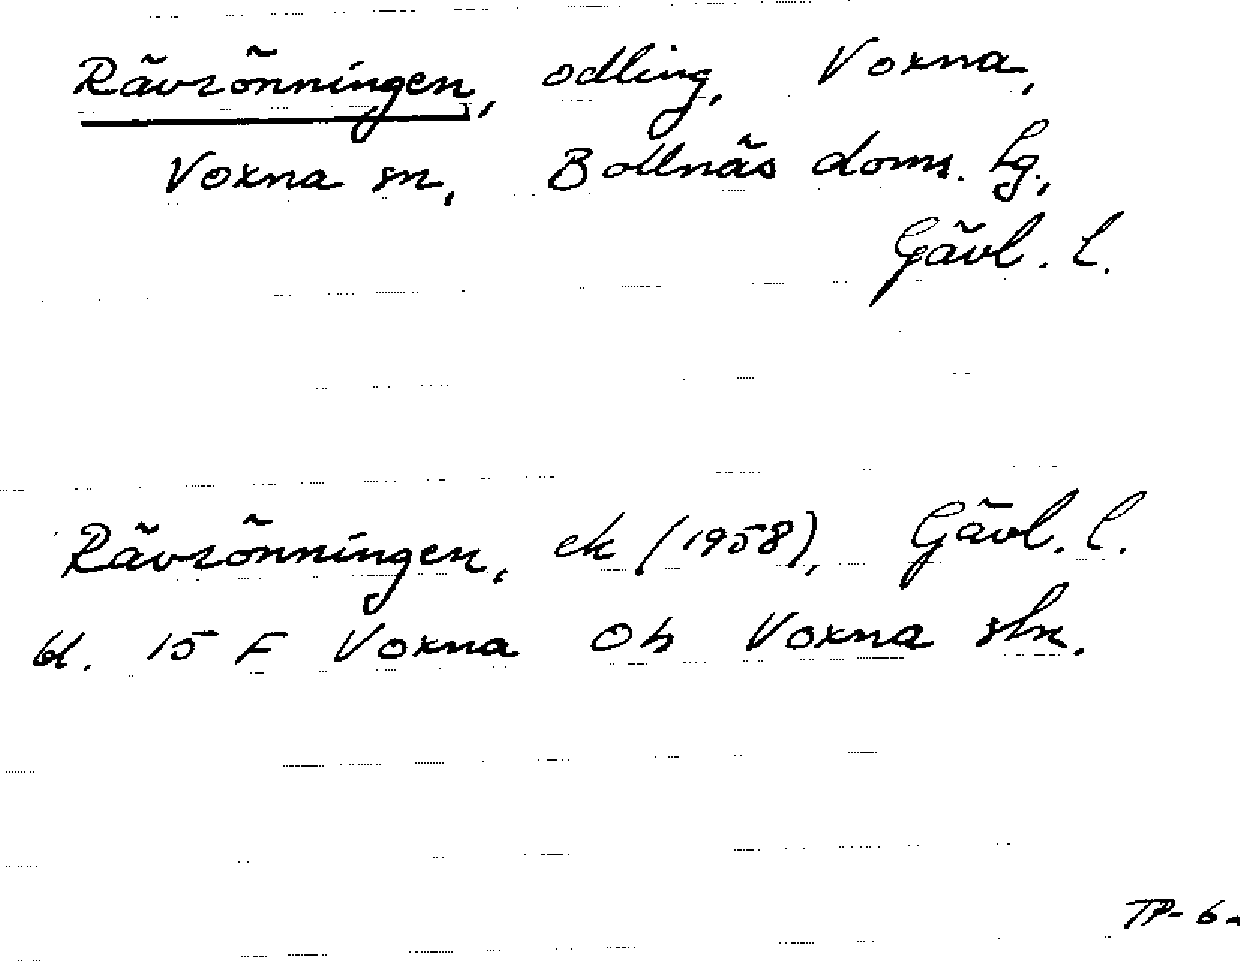 Rävrönningen, odling, Voxna,
Voxna sn, Bollnäs doms. hg,
Gävl. l.
Rävrönningen, ek (1958), Gävl. l.
bl. 15 F Voxna Oh Voxna shx.
TP-6